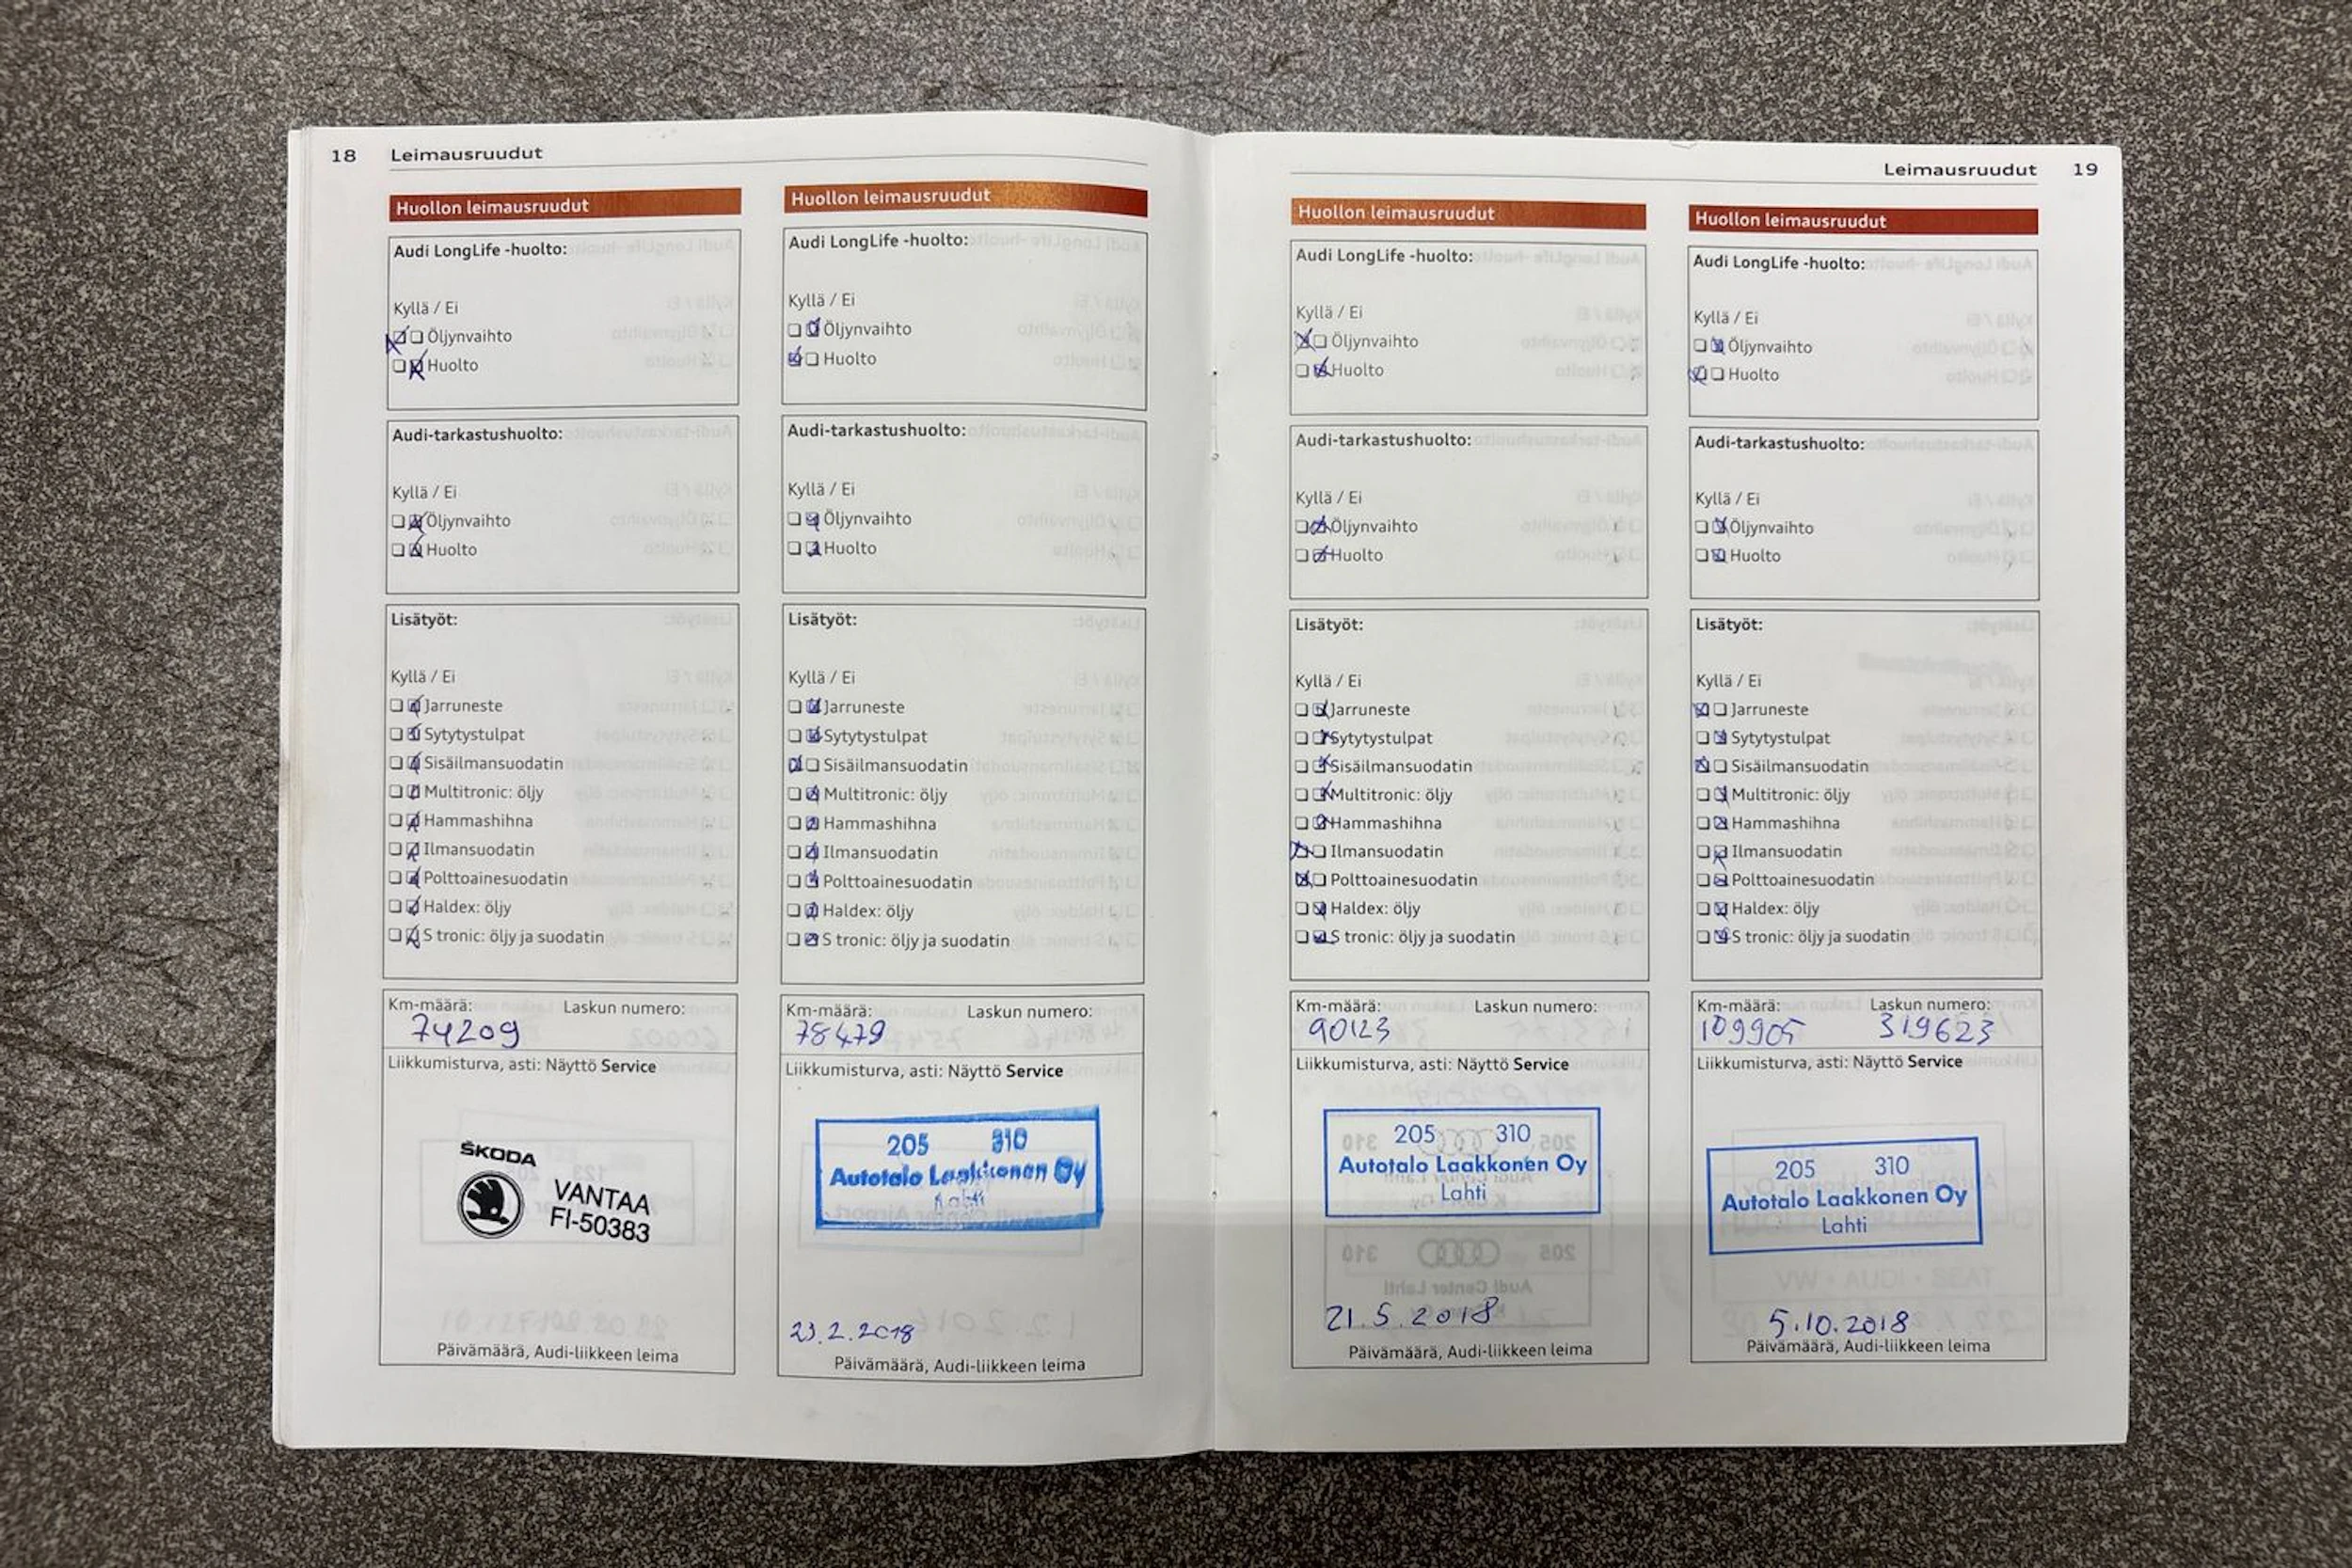 18 Leimausruudut
Huollon leimausruudut
Audi LongLife -huolto:
Kyllä / Ei
Öljynvaihto
Huolto
Audi-tarkastushuolto:
Kyllä / Ei
Öljynvaihto
Huolto
Lisätyöt:
Kyllä / Ei
Jarruneste
Sytytystulpat
Sisäilmansuodatin
Multitronic: öljy
Hammashihna
Ilmansuodatin
Polttoainesuodatin
Haldex: öljy
S tronic: öljy ja suodatin
Km-määrä: Laskun numero:
74209
Liikkumisturva, asti: Näyttö Service
ŠKODA
VANTAA
FI-50383
Päivämäärä, Audi-liikkeen leima
Huollon leimausruudut
Audi LongLife -huolto:
Kyllä / Ei
Öljynvaihto
Huolto
Audi-tarkastushuolto:
Kyllä / Ei
Öljynvaihto
Huolto
Lisätyöt:
Kyllä / Ei
Jarruneste
Sytytystulpat
Sisäilmansuodatin
Multitronic: öljy
Hammashihna
Ilmansuodatin
Polttoainesuodatin
Haldex: öljy
S tronic: öljy ja suodatin
Km-määrä: Laskun numero:
78479
Liikkumisturva, asti: Näyttö Service
205 310
Autotalo Laakkonen Oy
Lahti
23.2.2018
Päivämäärä, Audi-liikkeen leima
Leimausruudut 19
Huollon leimausruudut
Audi LongLife -huolto:
Kyllä / Ei
Öljynvaihto
Huolto
Audi-tarkastushuolto:
Kyllä / Ei
Öljynvaihto
Huolto
Lisätyöt:
Kyllä / Ei
Jarruneste
Sytytystulpat
Sisäilmansuodatin
Multitronic: öljy
Hammashihna
Ilmansuodatin
Polttoainesuodatin
Haldex: öljy
S tronic: öljy ja suodatin
Km-määrä: Laskun numero:
90123
Liikkumisturva, asti: Näyttö Service
205 310
Autotalo Laakkonen Oy
Lahti
21.5.2018
Päivämäärä, Audi-liikkeen leima
Huollon leimausruudut
Audi LongLife -huolto:
Kyllä / Ei
Öljynvaihto
Huolto
Audi-tarkastushuolto:
Kyllä / Ei
Öljynvaihto
Huolto
Lisätyöt:
Kyllä / Ei
Jarruneste
Sytytystulpat
Sisäilmansuodatin
Multitronic: öljy
Hammashihna
Ilmansuodatin
Polttoainesuodatin
Haldex: öljy
S tronic: öljy ja suodatin
Km-määrä: Laskun numero:
109905 319623
Liikkumisturva, asti: Näyttö Service
205 310
Autotalo Laakkonen Oy
Lahti
5.10.2018
Päivämäärä, Audi-liikkeen leima